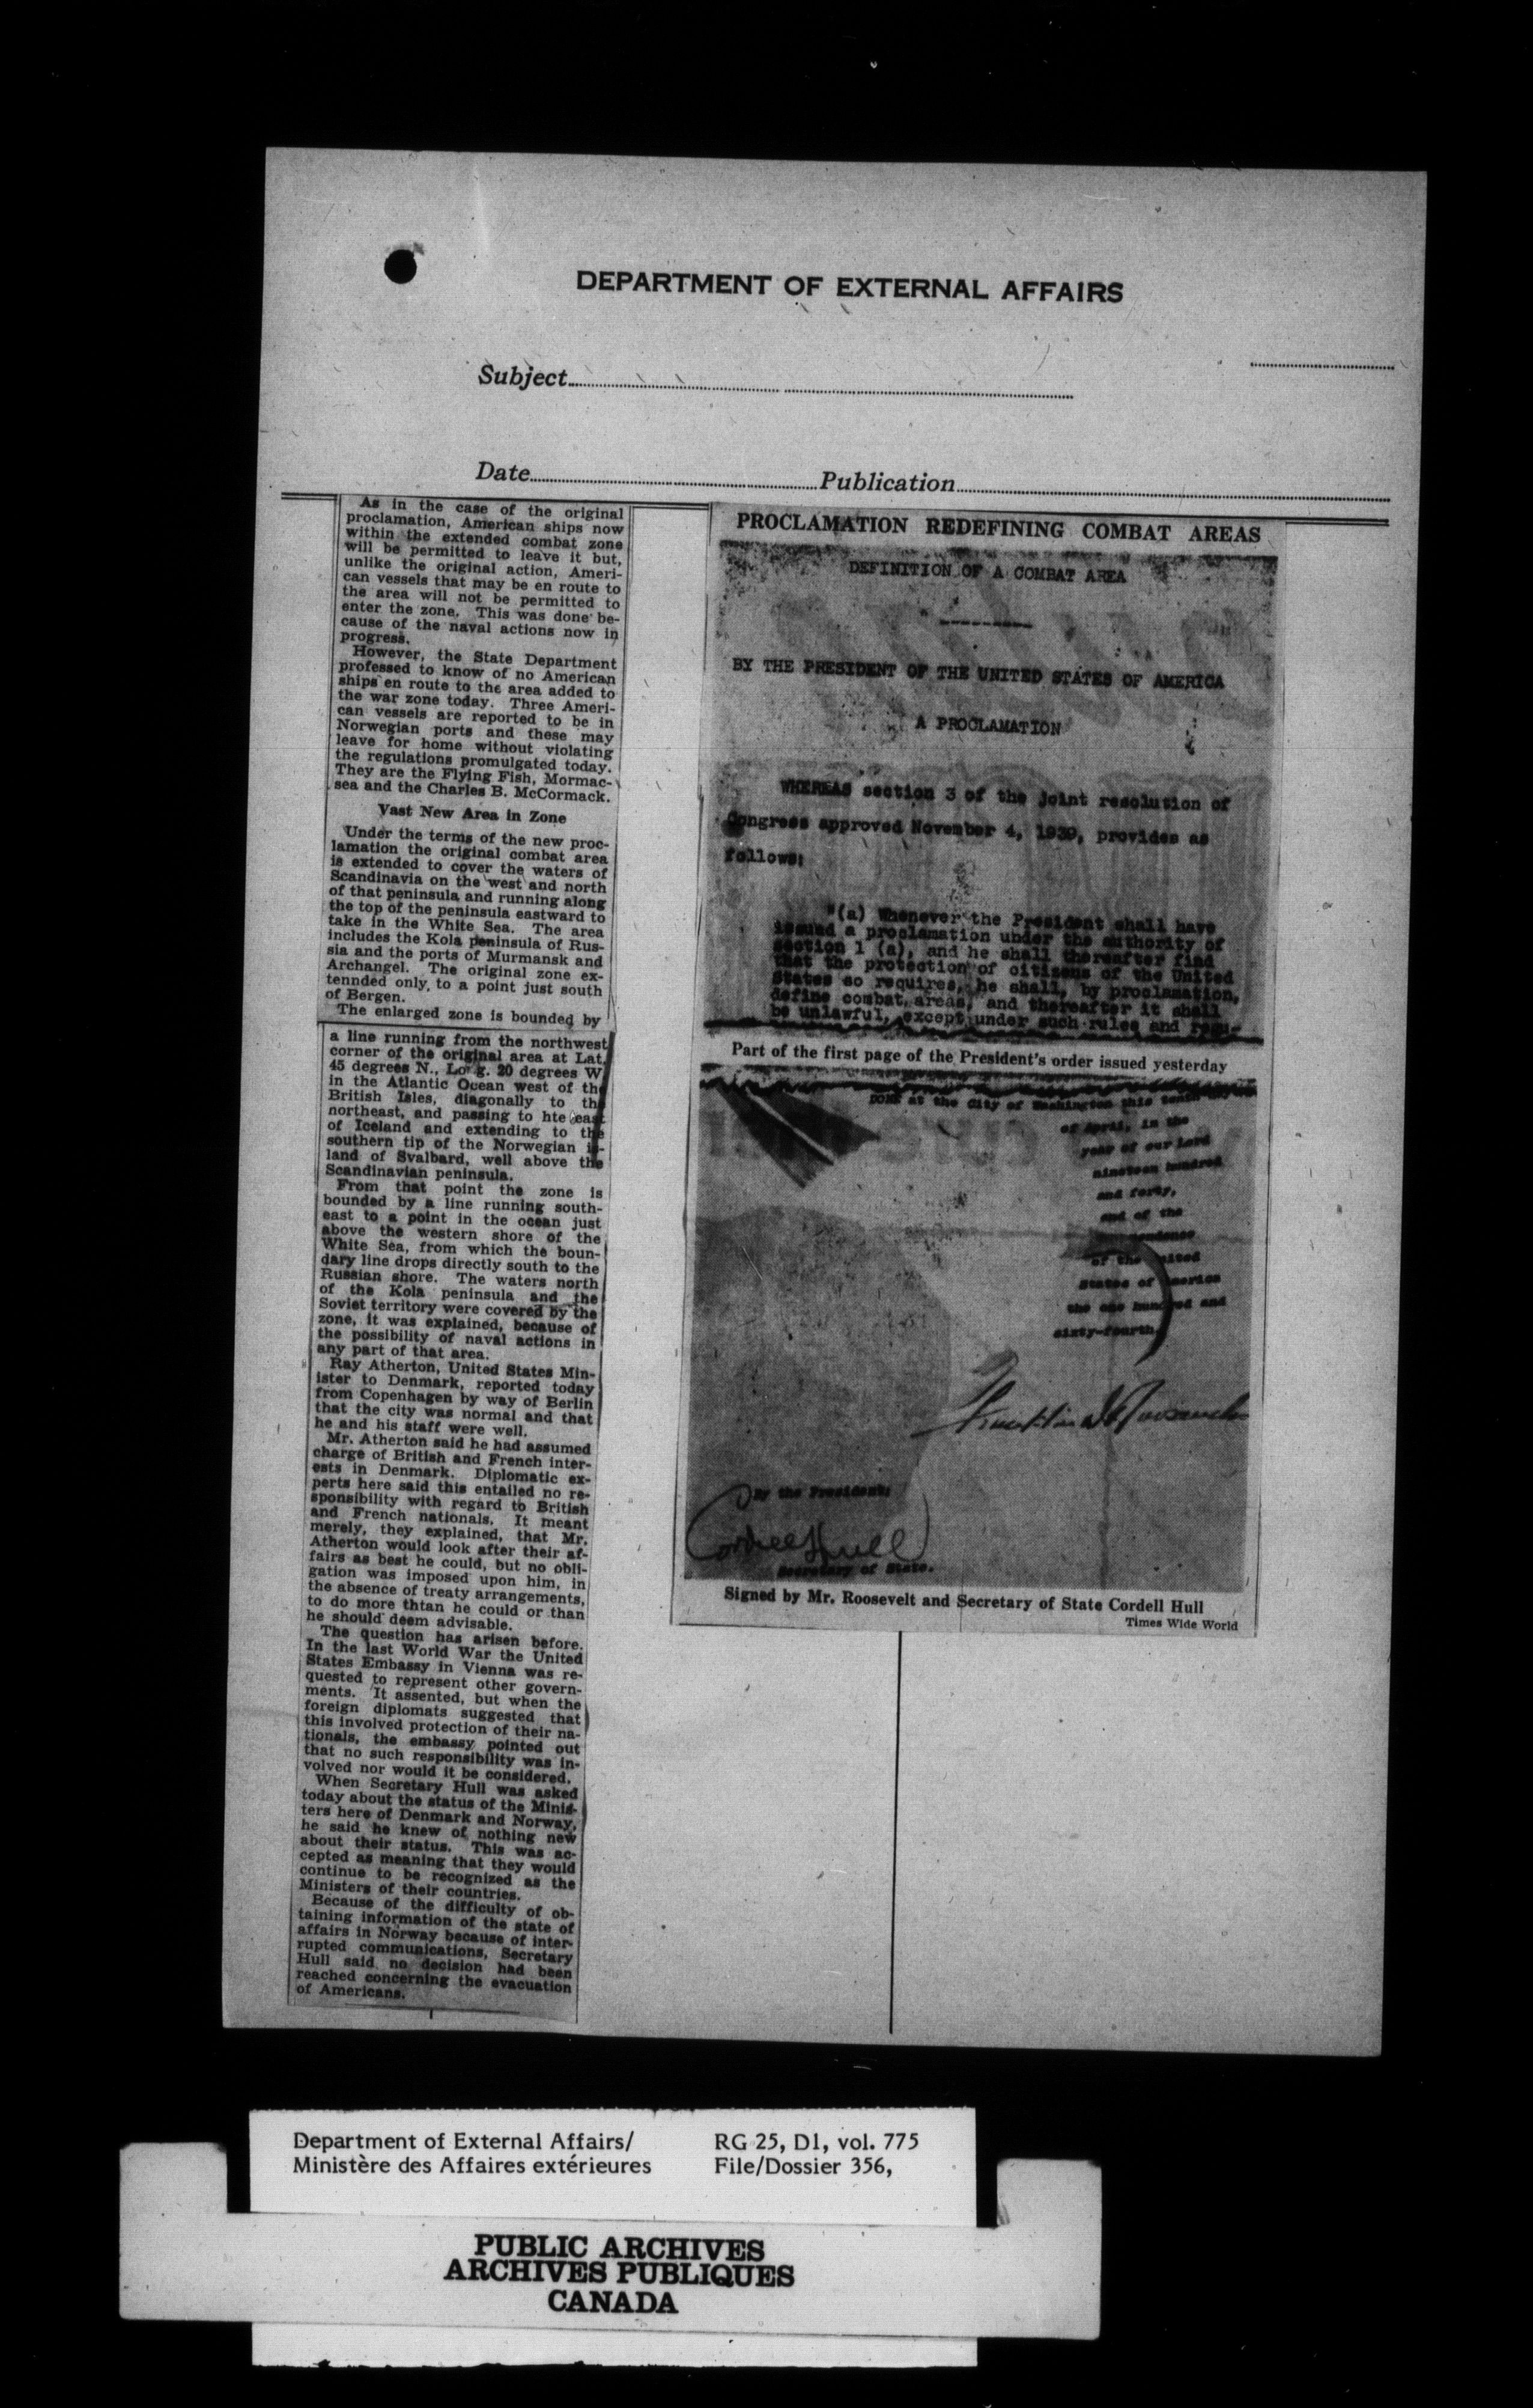 DEPARTMENT OF EXTERNAL AFFAIRS
Subject
Date
Publication
As in the case of the original
proclamation, American ships now
within the extended combat zone
will be permitted to leave it but,
unlike the original action, Ameri-
can vessels that may be en route to
the area will not be permitted to
enter the zone. This was done be-
cause of the naval actions now in
progress.
However, the State Department
professed to know of no American
ships en route to the area added to
the war zone today. Three Ameri-
can vessels are reported to be in
Norwegian ports and these may
leave for home without violating
the regulations promulgated today.
They are the Flying Fish, Mormac-
sea and the Charles B. McCormack.
Vast New Area in Zone
Under the terms of the new proc-
lamation the original combat area
is extended to cover the waters of
Scandinavia on the west and north
of that peninsula and running along
the top of the peninsula eastward to
take in the White Sea. The area
includes the Kola peninsula of Rus-
sia and the ports of Murmansk and
Archangel. The original zone ex-
tennded only to a point just south
of Bergen.
The enlarged zone is bounded by
a line running from the northwest
corner of the original area at Lat.
45 degrees N., Log. 20 degrees W
in the Atlantic Ocean west of the
British Isles, diagonally to the
northeast, and passing to hte east
of Iceland and extending to the
southern tip of the Norwegian is-
land of Svalbard, well above the
Scandinavian peninsula.
From that point the zone is
bounded by a line running south-
east to a point in the ocean just
above the western shore of the
White Sea, from which the boun-
dary line drops directly south to the
Russian shore. The waters north
of the Kola peninsula and the
Soviet territory were covered by the
zone, it was explained, because of
the possibility of naval actions in
any part of that area.
Ray Atherton, United States Min-
ister to Denmark, reported today
from Copenhagen by way of Berlin
that the city was normal and that
he and his staff were well.
Mr. Atherton said he had assumed
charge of British and French inter-
ests in Denmark. Diplomatic ex-
perts here said this entailed no re-
sponsibility with regard to British
and French nationals. It meant
merely, they explained, that Mr.
Atherton would look after their af-
fairs as best he could, but no obli-
gation was imposed upon him, in
the absence of treaty arrangements,
to do more thtan he could or than
he should deem advisable.
The question has arisen before.
In the last World War the United
States Embassy in Vienna was re-
quested to represent other govern-
ments. It assented, but when the
foreign diplomats suggested that
this involved protection of their na-
tionals, the embassy pointed out
that no such responsibility was in-
volved nor would it be considered.
When Secretary Hull was asked
today about the status of the Minis-
ters here of Denmark and Norway,
he said he knew of nothing new
about their status. This was ac-
cepted as meaning that they would
continue to be recognized as the
Ministers of their countries.
Because of the difficulty of ob-
taining information of the state of
affairs in Norway because of inter-
rupted communications, Secretary
Hull said no decision had been
reached concerning the evacuation
of Americans.
PROCLAMATION REDEFINING COMBAT AREAS
DEFINITION OF A COMBAT AREA
BY THE PRESIDENT OF THE UNITED STATES OF AMERICA
A PROCLAMATION
WHEREAS section 3 of the joint resolution of
Congress approved November 4, 1939, provides as
follows:
"(a) Whenever the President shall have
issued a proclamation under the authority of
section 1 (a), and he shall thereafter find
that the protection of citizens of the United
States so requires, he shall, by proclamation,
define combat areas, and thereafter it shall
be unlawful, except under such rules and regu-
Part of the first page of the President's order issued yesterday
DONE at the City of Washington this tenth
of April, in the
year of our Lord
nineteen hundred
and forty,
and of the
of the United
States of America
the one hundred and
sixty-fourth.
Franklin D Roosevelt
By the President:
Cordell Hull
Secretary of State.
Signed by Mr. Roosevelt and Secretary of State Cordell Hull
Times Wide World
Department of External Affairs/
Ministère des Affaires extérieures
RG 25, D1, vol. 775
File/Dossier 356,
PUBLIC ARCHIVES
ARCHIVES PUBLIQUES
CANADA